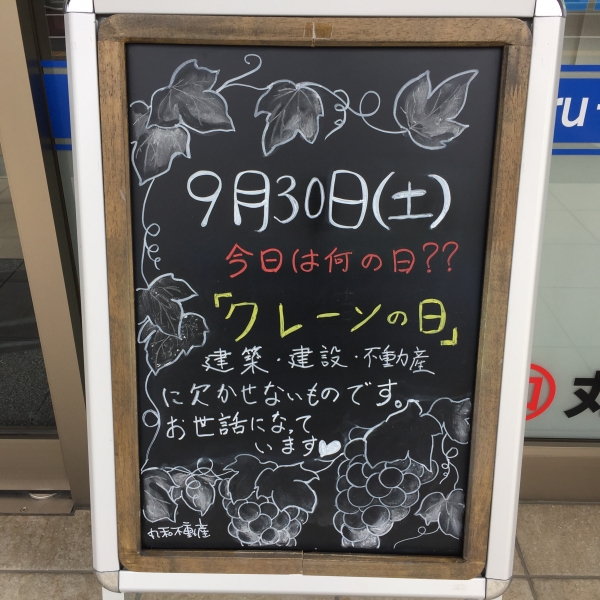 9月30日(土)
今日は何の日??
「クレーンの日」
建築・建設・不動産
に欠かせないものです。
お世話になって
います♥
丸和不動産
ru-
丸